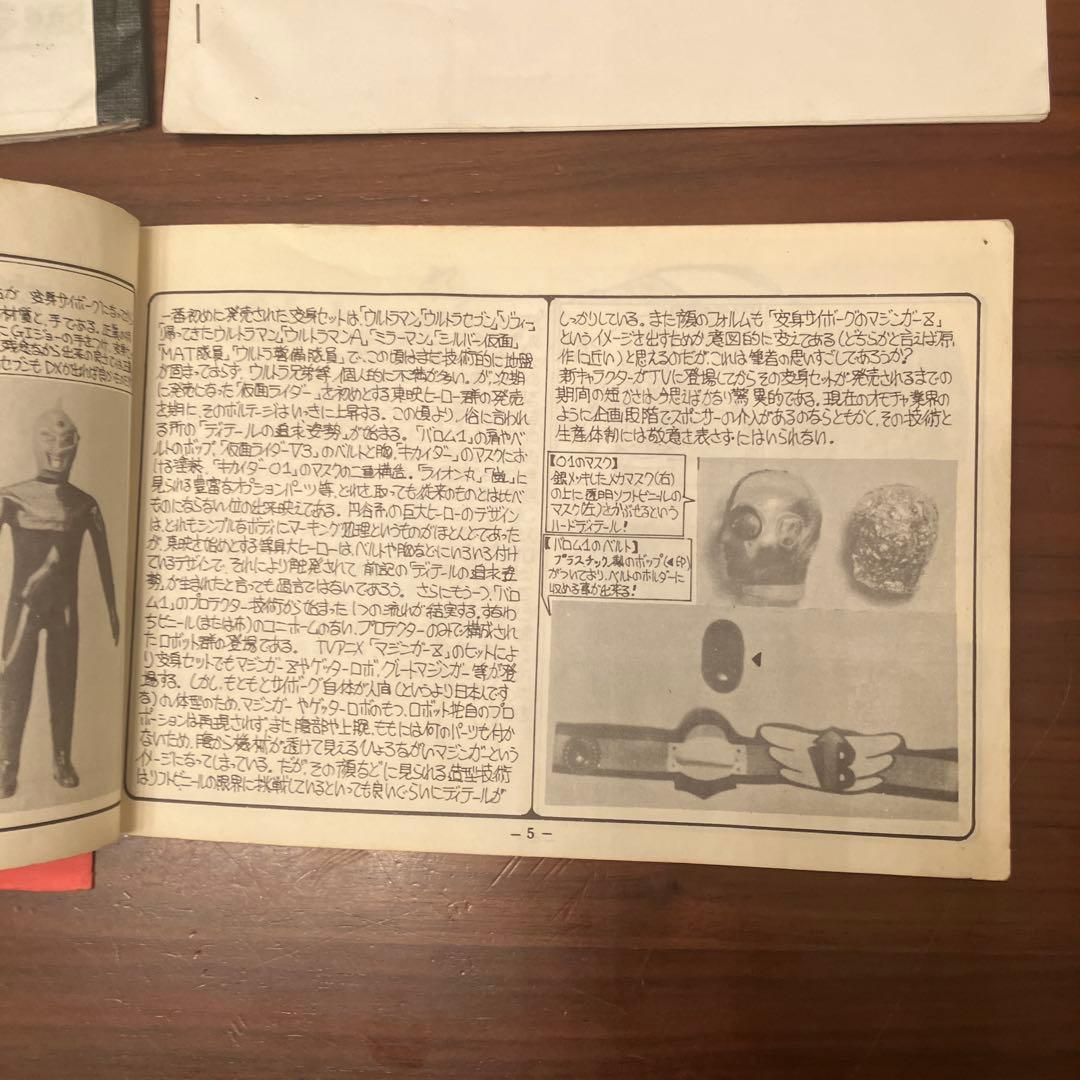 変身サイボーグになった
材質と、手である。
にG.I.ジョーの手を
セブンもDXが出れば
一番初めに発売された変身セットは、「ウルトラマン」「ウルトラセブン」「ゾフィー」
「帰ってきたウルトラマン」「ウルトラマンA」「ミラーマン」「シルバー仮面」
「MAT隊員」「ウルトラ警備隊員」で、この頃はまだ技術的に地盤
が固まっておらず、ウルトラ兄弟等、個人的に不満が多い。が、次期
に発売になった「仮面ライダー」を初めとする東映ヒーロー群の発売
を期に、そのボルテージはいっきに上昇する。この頃より、俗に言われ
る所の「ディテールの追求姿勢」が始まる。「バロム1」の肩やベ
ルトのポップ、「仮面ライダーV3」のベルトと胸、「キカイダー」のマスクにお
ける塗装、「キカイダー01」のマスクの二重構造。「ライオン丸」「嵐」に
見られる豊富なオプションパーツ等、どれを取っても従来のものとはくらべ
ものにならない位の出来映えである。円谷系の巨大ヒーローのデザイン
はどれもシンプルなボディにマーキング処理というものがほとんどであった
が、東映を始めとする等身大ヒーローは、ベルトや胸などにいろいろ付け
ているデザインで、それにより触発されて前記の「ディテールの追求姿
勢」が生まれたと言っても過言ではないであろう。さらにもう1つ、「バロ
ム1」のプロテクター技術から始まった1つの流れが結実する。すなわ
ちビニール(または布)のユニホームのない、プロテクターのみで構成され
たロボット群の登場である。 TVアニメ「マジンガーZ」のヒットによ
り変身セットでもマジンガーZやゲッターロボ、グレートマジンガー等が登
場する。しかし、もともとサイボーグ自体が人間(というより日本人です
な)の体型のため、マジンガーやゲッターロボのもつ、ロボット独自のプロ
ポーションは再現されず、また腹部や上腕、ももには何のパーツも付か
ないため、腹から機械が透けて見えるひょろながいマジンガーという
イメージになってしまっている。だが、その顔などに見られる造型技術
はソフトビニールの限界に挑戦しているといっても良いぐらいにディテールが
しっかりしている。また顔のフォルムも「変身サイボーグのマジンガーZ」
というイメージを出すためか、意図的に変えてある(どちらかと言えば原
作に近い)と思えるのだが、これは筆者の思いすごしであろうか?
新キャラクターがTVに登場してからその変身セットが発売されるまでの
期間の短かさは今思えばかなり驚異的である。現在のオモチャ業界の
ように企画段階でスポンサーの介入があるのならともかく、その技術と
生産体制には敬意を表さずにはいられない。
【01のマスク】
銀メッキしたメカマスク(右)
の上に透明ソフトビニールの
マスク(左)をかぶせるという
ハードディテール!
【バロム1のベルト】
プラスチック製のポップ(◀印)
がついており、ベルトのホルダーに
収める事が出来る!
B
－5－